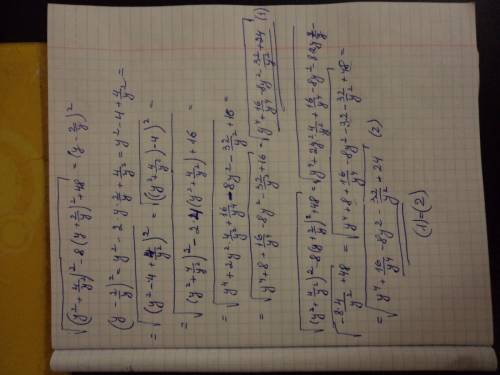 √((y²+4/y²)²-8(y+2/y)²+48) = (y-2/y)²
(y-2/y)² = y²-2y·2/y+4/y² = y²-4+4/y² =
= √((y²-4+4/y²)²) = √(((y²+4/y²)-4)²) =
= √((y²+4/y²)²-2·4(y²+4/y²)+16 =
= √(y⁴+2y²·4/y²+16/y⁴-8y²-32/y²+16 =
= √(y⁴+8+16/y⁴-8y²-32/y²+16 = √(y⁴+16/y⁴-8y²-32/y²+24 (1)
√((y²+4/y²)²-8(y+2/y)²+48 = √(y⁴+2y²·4/y²+16/y⁴-8y²-8·2y·2/y-
-8·4/y²+48 = √(y⁴+8+16/y⁴-8y²-32-32/y²+48 =
= √(y⁴+16/y⁴-8y²-32/y²+24 (2)
(1)=(2)